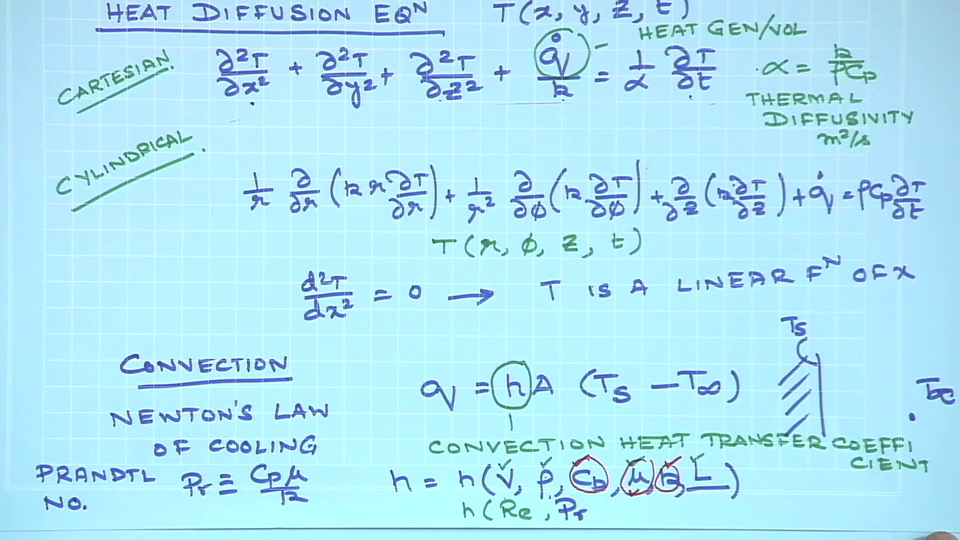 HEAT DIFFUSION EQN T(x, y, z, t)
HEAT GEN/VOL
CARTESIAN. ∂²T/∂x² + ∂²T/∂y² + ∂²T/∂z² + q̇/k = 1/α ∂T/∂t . α = k/ρCp
THERMAL
DIFFUSIVITY
m²/s
CYLINDRICAL.
1/r ∂/∂r (k r ∂T/∂r) + 1/r² ∂/∂φ (k ∂T/∂φ) + ∂/∂z (k ∂T/∂z) + q̇ = ρCp ∂T/∂t
T(r, φ, z, t)
d²T/dx² = 0 → T IS A LINEAR FN OF X
Ts
CONVECTION
q = hA (Ts - T∞) T∞
NEWTON'S LAW
OF COOLING
CONVECTION HEAT TRANSFER COEFFI
CIENT
PRANDTL NO. Pr ≡ Cpμ/k h = h(V, ρ, Cp, μ, k, L)
h(Re, Pr